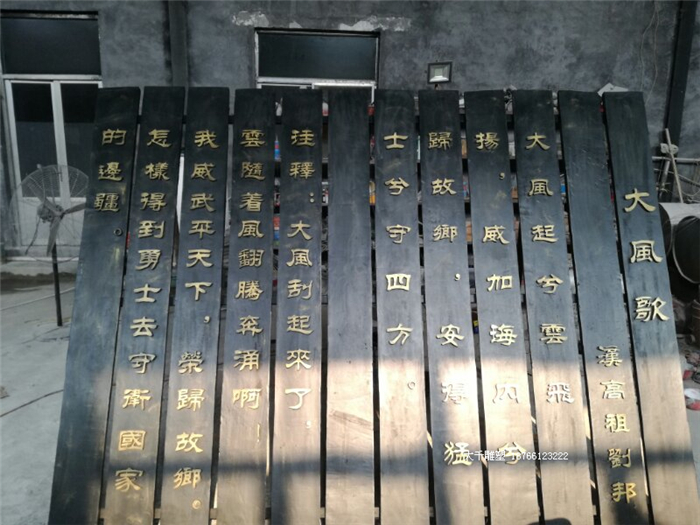 大風歌
漢高祖劉邦
大風起兮雲飛
揚，威加海內兮
歸故鄉，安得猛
士兮守四方。
注釋：大風刮起來了，
雲隨着風翻騰奔涌啊！
我威武平天下，榮歸故鄉。
怎樣得到勇士去守衛國家
的邊疆。
大千雕塑 15766123222